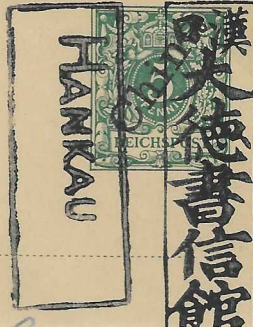 HANKAU
China
REICHSPOST
漢口
大德書信館